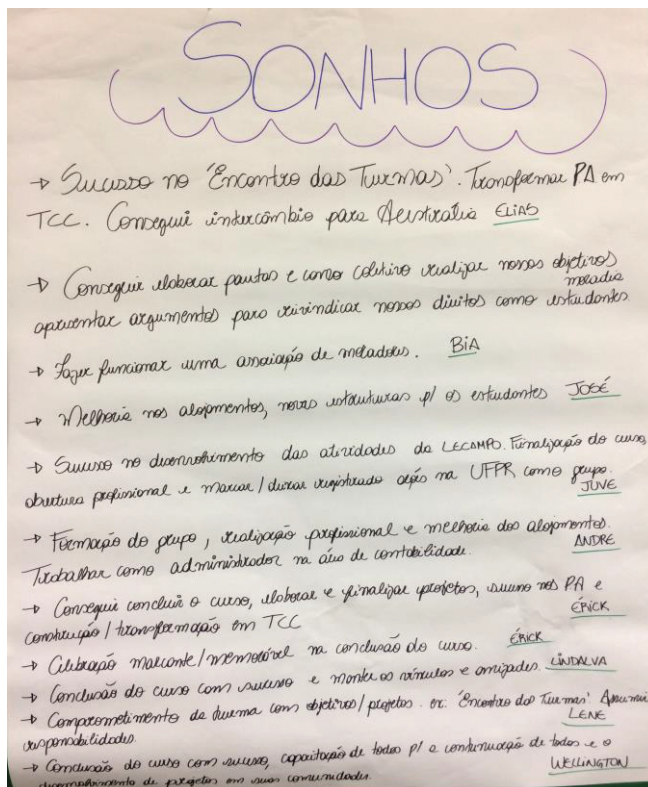 SONHOS
→ Sucesso no 'Encontro das Turmas'. Transformar PA em
TCC. Consegui intercâmbio para Austrália ELIAS
→ Conseguir elaborar pautas e como coletivo realizar nossos objetivos
apresentar argumentos para reivindicar nossos direitos como estudantes.
→ Fazer funcionar uma associação de moradores. BIA
→ Melhoria nos alojamentos, novas estruturas p/ os estudantes JOSÉ
→ Sucesso no desenvolvimento das atividades da LECAMPO. Finalização do curso,
abertura profissional e marcar/deixar registrado ações na UFPR como grupo.
JUVE
→ Formação do grupo, realização profissional e melhoria dos alojamentos.
Trabalhar como administrador na área de contabilidade. ANDRÉ
→ Consegui concluir o curso, elaborar e finalizar projetos, sucesso nos PA e
construção/transformação em TCC ÉRICK
→ Celebração marcante/memorável na conclusão do curso. ÉRICK
→ Conclusão do curso com sucesso e manter os vínculos e amizades. LINDALVA
→ Comprometimento da turma com objetivos/projetos. ex: 'Encontro das Turmas'. Assumir
responsabilidades. LENE
→ Conclusão do curso com sucesso, capacitação de todos p/ a continuação de todos e o
desenvolvimento de projetos em suas comunidades. WELLINGTON